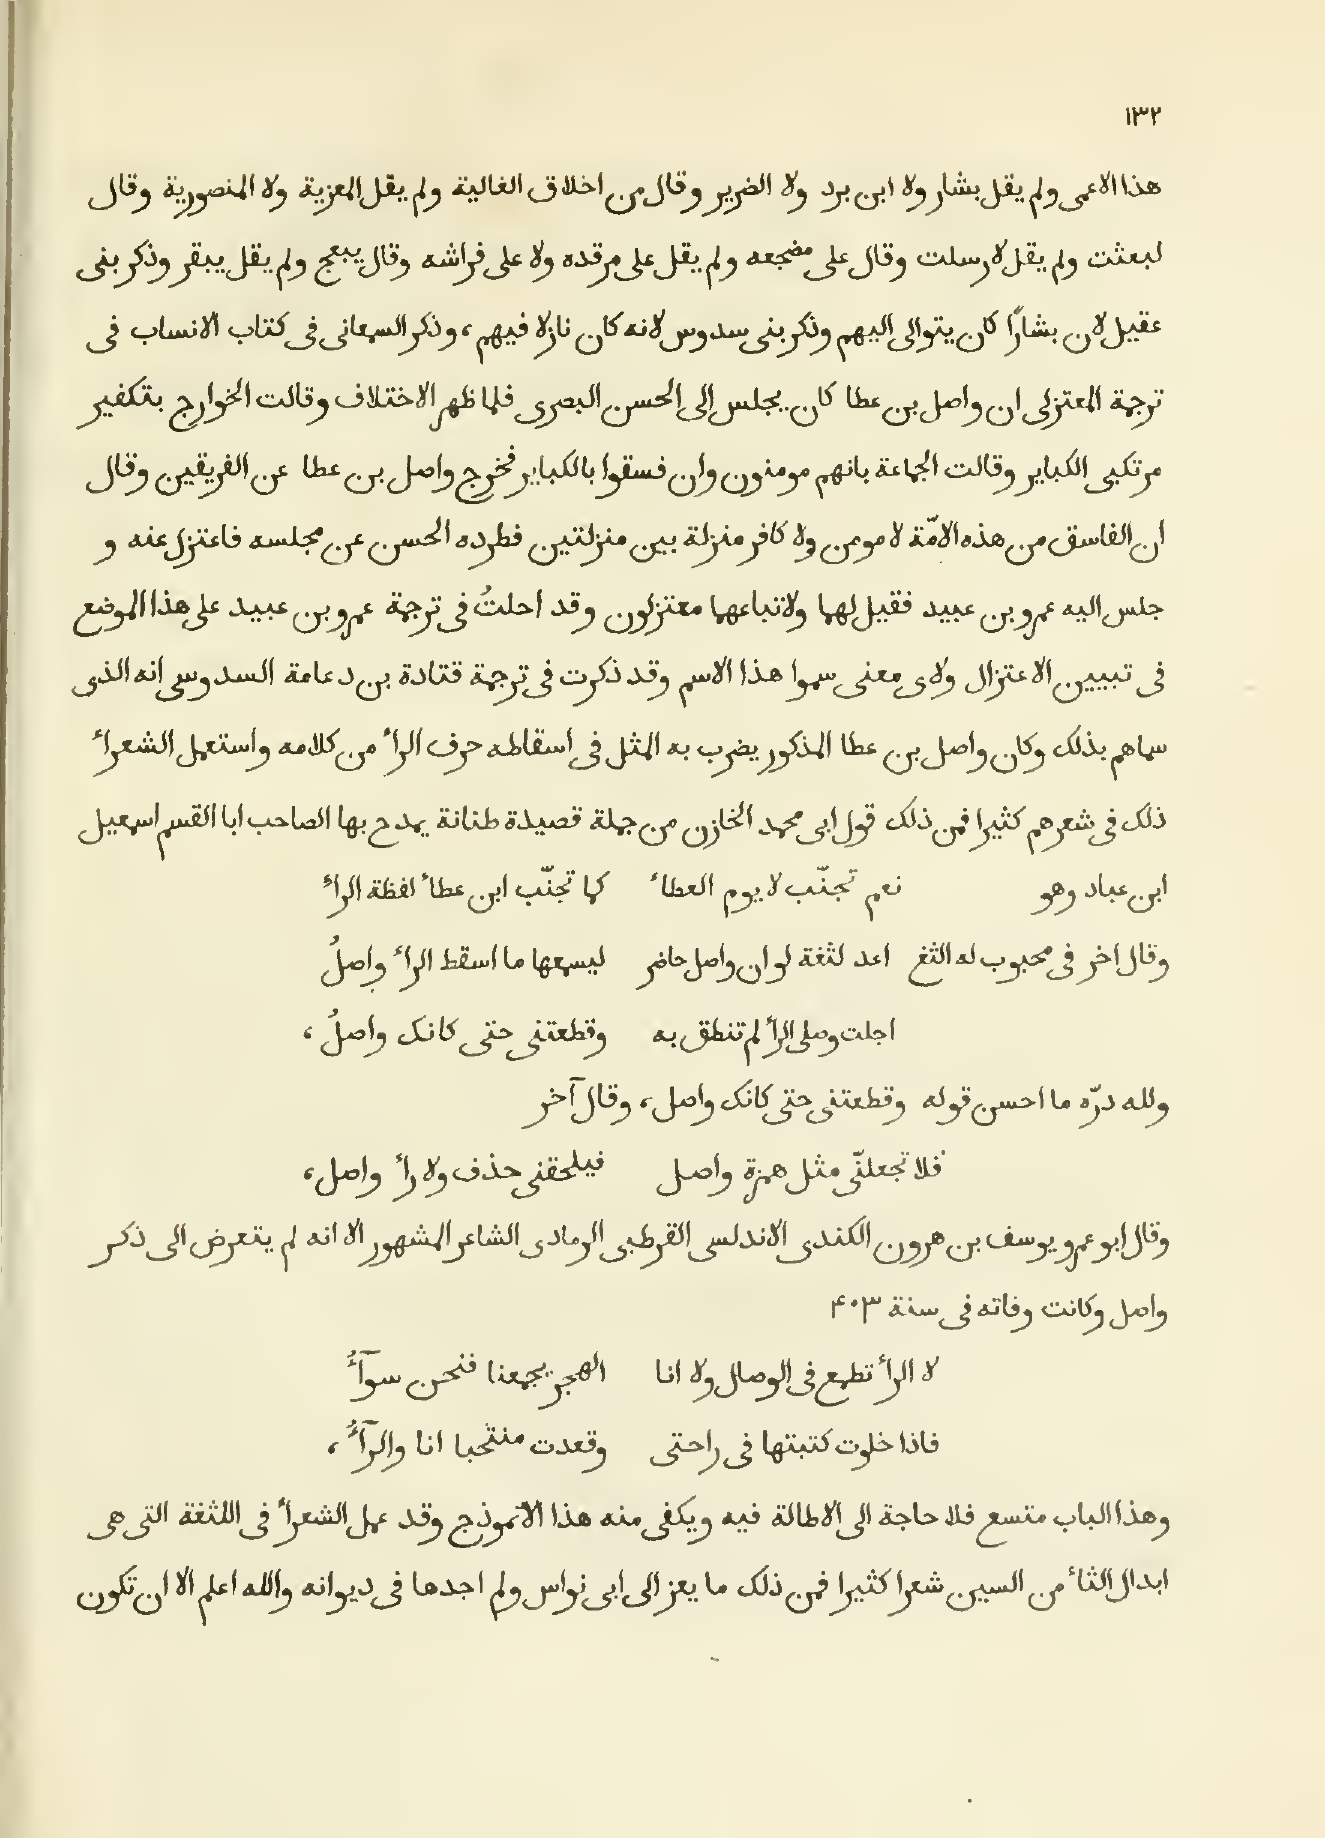 ١٣٢
هذا الاعمى ولم يقل بشار ولا ابن برد ولا الضرير وقال من اخلاق الغالية ولم يقل المعزية ولا المنصورية وقال
لبعثت ولم يقل لارسلت وقال على مضجعه ولم يقل على مرقده ولا على فراشه وقال يبعج ولم يقل يبقر وذكر بنى
عقيل لان بشارًا كان يتوالى اليهم وذكر بنى سدوس لانه كان نازلا فيهم، وذكر السمعانى فى كتاب الانساب فى
ترجمة المعتزلى ان واصل بن عطا كان يجلس إلى الحسن البصرى فلما ظهر الاختلاف وقالت الخوارج بتكفير
مرتكبى الكباير وقالت الجماعة بانهم مومنون وان فسقوا بالكباير فخرج واصل بن عطا عن الفريقين وقال
ان الفاسق من هذه الامّة لا مومن ولا كافر منزلة بين منزلتين فطرده الحسن عن مجلسه فاعتزل عنه و
جلس اليه عمرو بن عبيد فقيل لهما ولاتباعهما معتزلون وقد احلتُ فى ترجمة عمرو بن عبيد على هذا الموضع
فى تبيين الاعتزال ولاى معنى سموا هذا الاسم وقد ذكرت فى ترجمة قتادة بن دعامة السدوسى انه الذى
سماهم بذلك وكان واصل بن عطا المذكور يضرب به المثل فى اسقاطه حرف الرأ من كلامه واستعمل الشعرأ
ذلك فى شعرهم كثيرا فمن ذلك قول ابى محمد الخازن من جملة قصيدة طنانة يمدح بها الصاحب ابا القسم اسمعيل
ابن عباد وهو نعم تجنّب لا يوم العطأ كما تجنّب ابن عطأ لفظة الرأ
وقال اخر فى محبوب له الثغ اعد لثغة لو ان واصل حاضر ليسمعها ما اسقط الرأ واصلُ
اجلت وصلى الرأ لم تنطق به وقطعتنى حتى كانك واصلُ،
ولله درّه ما احسن قوله وقطعتنى حتى كانك واصل، وقال آخر
فلا تجعلنّى مثل همزة واصل فيلحقنى حذف ولا رأ واصل،
وقال ابو عمرو يوسف بن هرون الكندى الاندلسى القرطبى الرمادى الشاعر المشهور الا انه لم يتعرض الى ذكر
واصل وكانت وفاته فى سنة ٤٠٣
لا الرأ تطمع فى الوصال ولا انا الهجر يجمعنا فنحن سوآءُ
فاذا خلوت كتبتها فى راحتى وقعدت منتحبا انا والرآءُ،
وهذا الباب متسع فلا حاجة الى الاطالة فيه ويكفى منه هذا الانموذج وقد عمل الشعرأ فى اللثغة التى هى
ابدال الثأ من السين شعرا كثيرا فمن ذلك ما يعز الى ابى نواس ولم اجدها فى ديوانه والله اعلم الا ان تكون